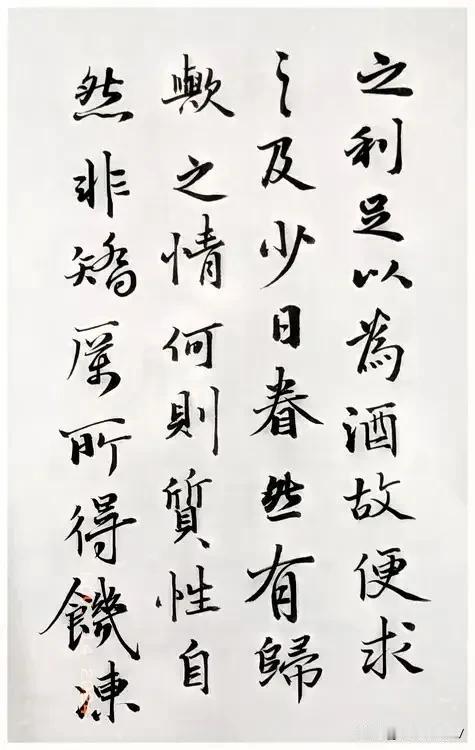 之利足以為酒故便求
之及少日眷然有歸
歟之情何則質性自
然非矯厲所得饑凍